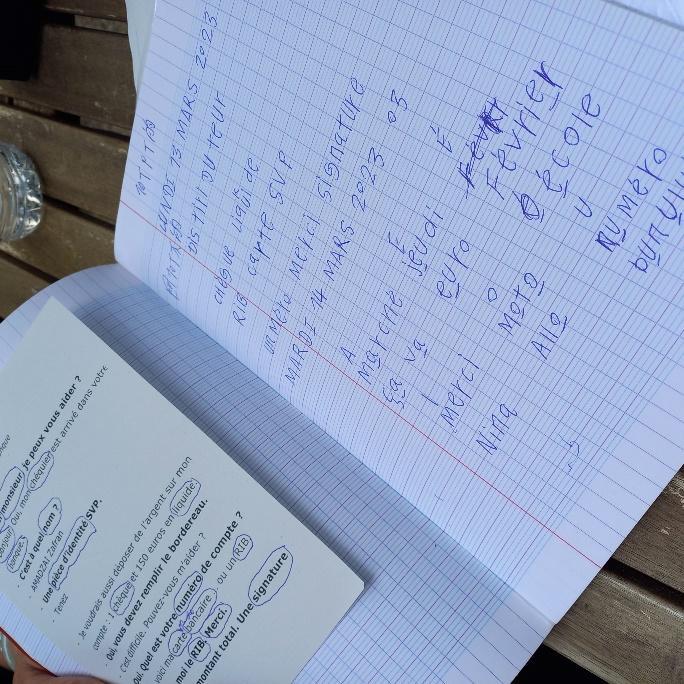 LUNDI 13 MARS 2023
DISTRIBUTEUR
chégue liquide
RIB carte SVP
numéro merci signature
MARDI 14 MARS 2023 03
A
marche
ça va
E
jeudi
euro
É
Février
école
I
merci
Nina
O
Moto
Allo
U
Numéro
monsieur, je peux vous aider ?
Oui, mon chéquier est arrivé dans votre
banque.
- C'est à quel nom ?
- AMADZAI Zafran
- Une pièce d'identité SVP.
- Tenez
- Je voudrais aussi déposer de l'argent sur mon
compte : 1 chèque et 150 euros en liquide.
- Oui, vous devez remplir le bordereau.
- C'est difficile. Pouvez-vous m'aider ?
- Oui. Quel est votre numéro de compte ?
voici ma carte bancaire ou un RIB
moi le RIB. Merci.
montant total. Une signature